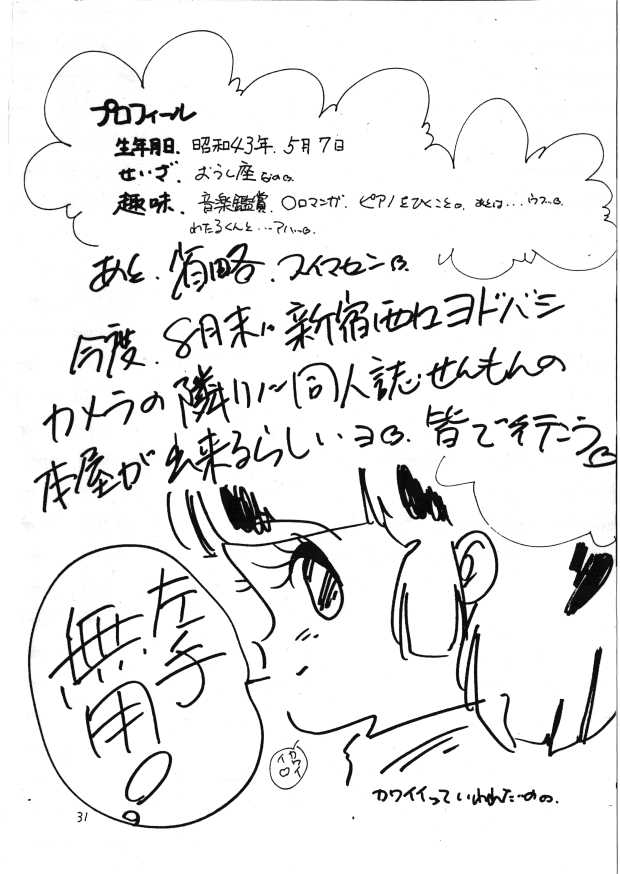 プロフィール
生年月日. 昭和43年. 5月7日
せいざ. おうし座なの。
趣味. 音楽鑑賞. ○ロマンガ. ピアノをひくこと。あとは…ウフ。
わたるくんと…アハ。
あと. 省略. スイマセン。
今度. 8月末に新宿西口ヨドバシ
カメラの隣りに同人誌せんもんの
本屋が出来るらしいヨ。皆で行こう。
左手
無用
カワイイ
カワイイっていわれたいの。
31